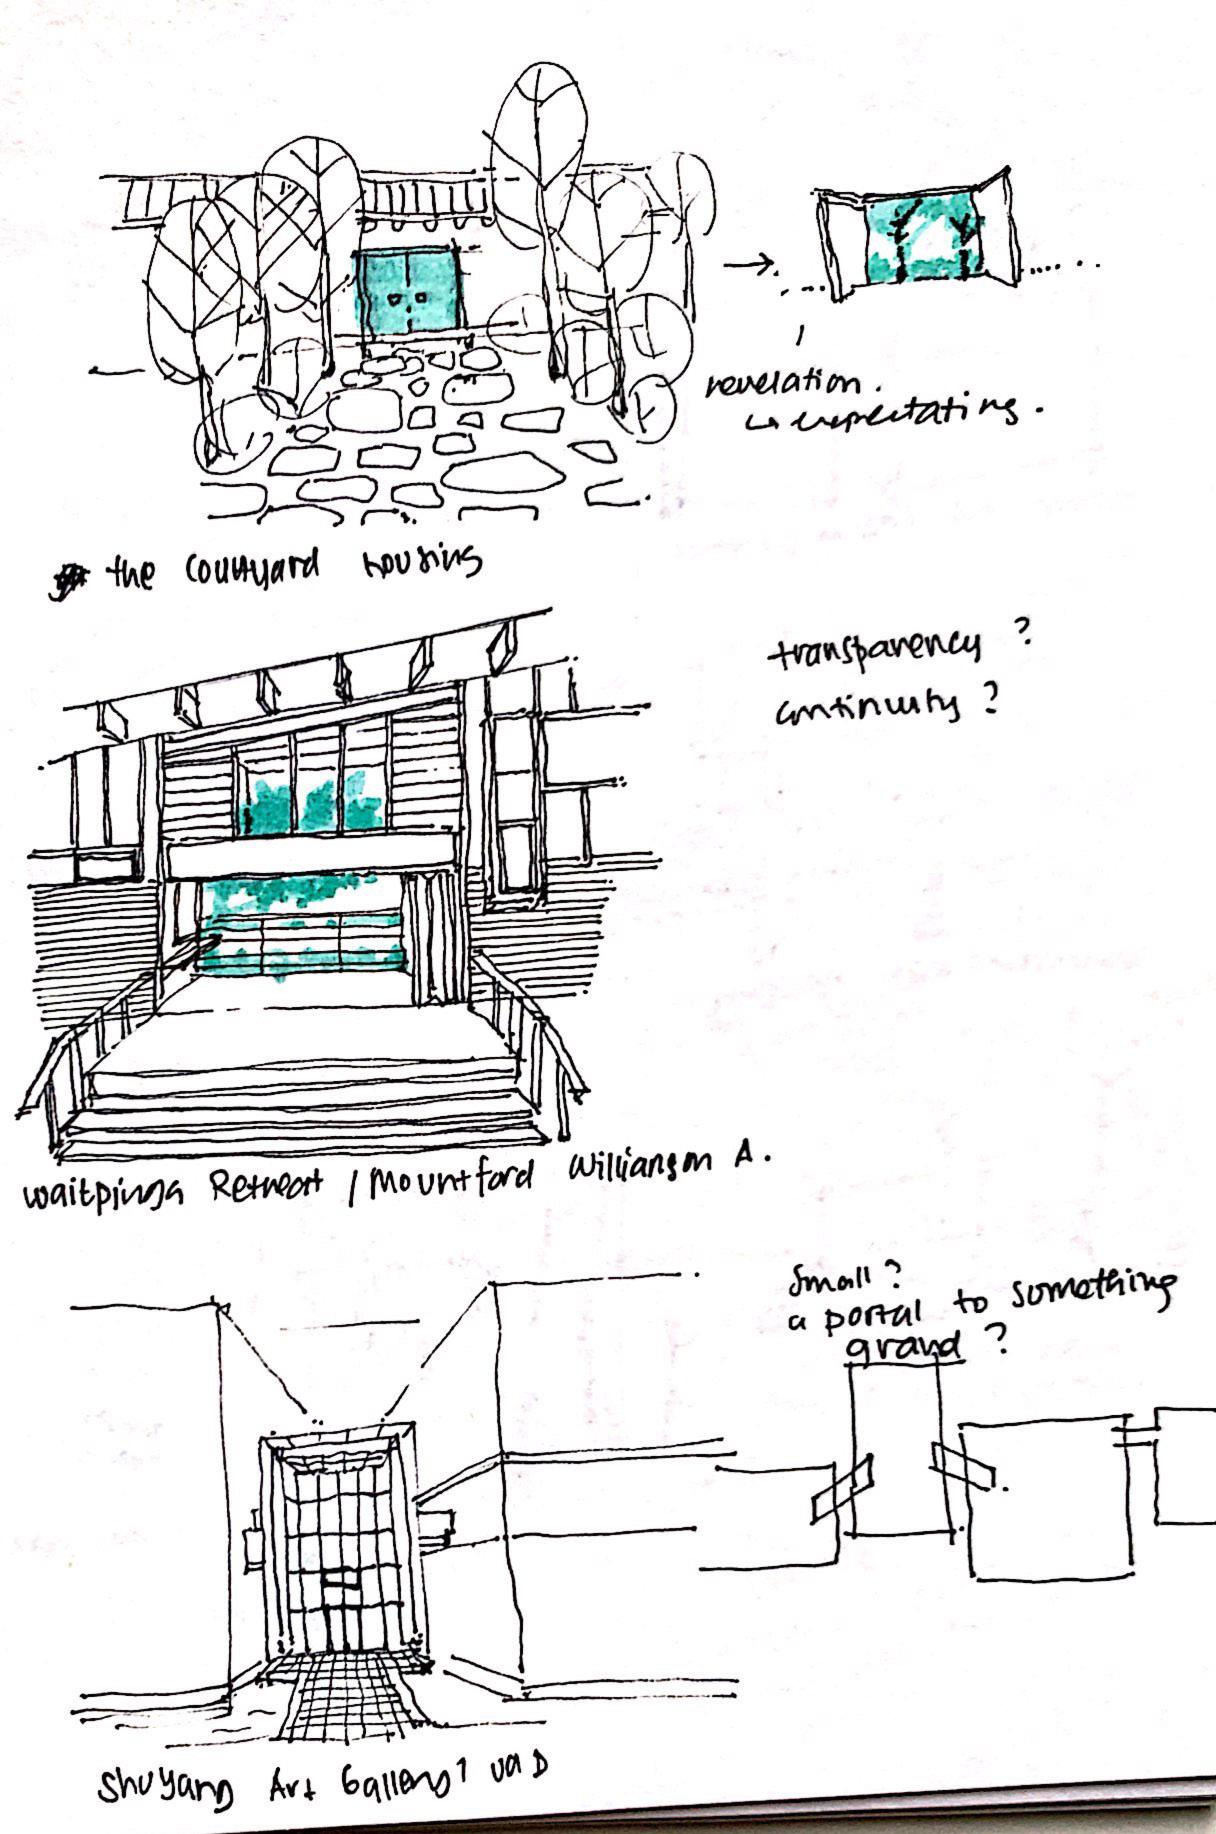 revelation.
↳ expectating.
the courtyard housing
transparency?
continuity?
Waitpinga Retreat / Mountford Williamson A.
Small?
a portal to something
grand?
Shuyang Art Gallery / UAD